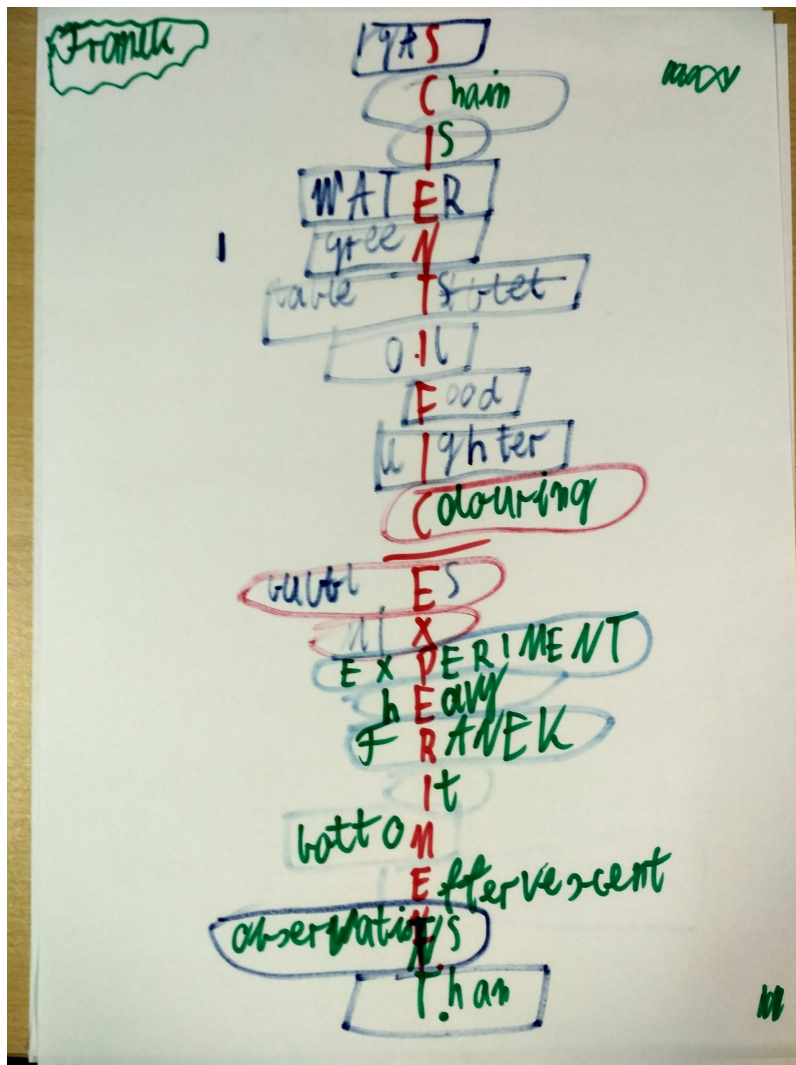 Franek
gAS
Chain
IS
WATER
greeN
tableTs
oIl
Food
lIghter
Colouring
bublEs
EXPERIMENT
hEavy
FRANEK
It
bottoM
Effervescent
observatioNs
T.han